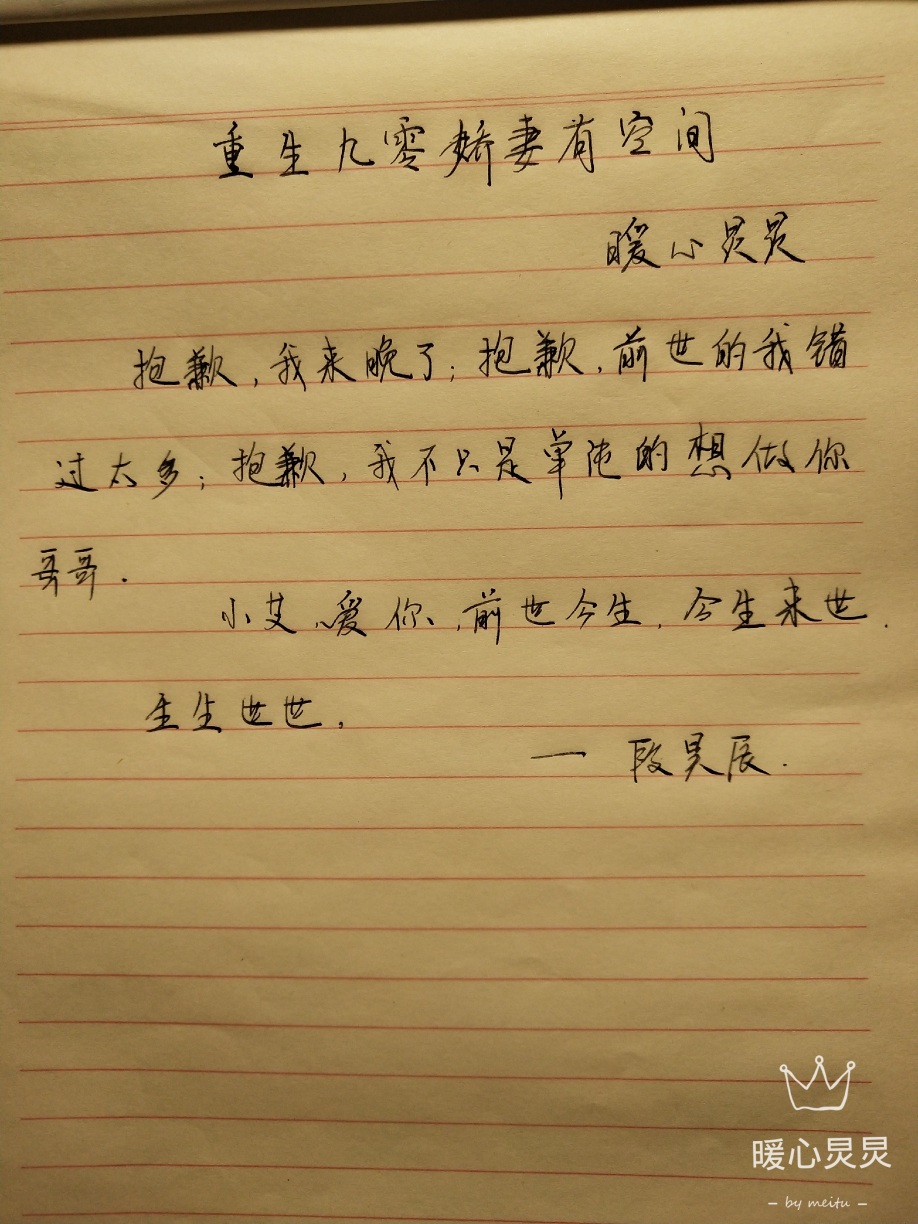 重生九零娇妻有空间
暖心炅炅
抱歉,我来晚了;抱歉,前世的我错
过太多;抱歉,我不只是单纯的想做你
哥哥.
小艾,爱你,前世今生,今生来世.
生生世世,
— 段昊辰.
暖心炅炅
– by meitu –